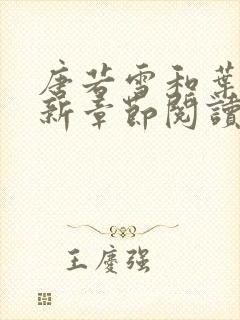 唐若雪和葉
新章節閱讀
王慶强